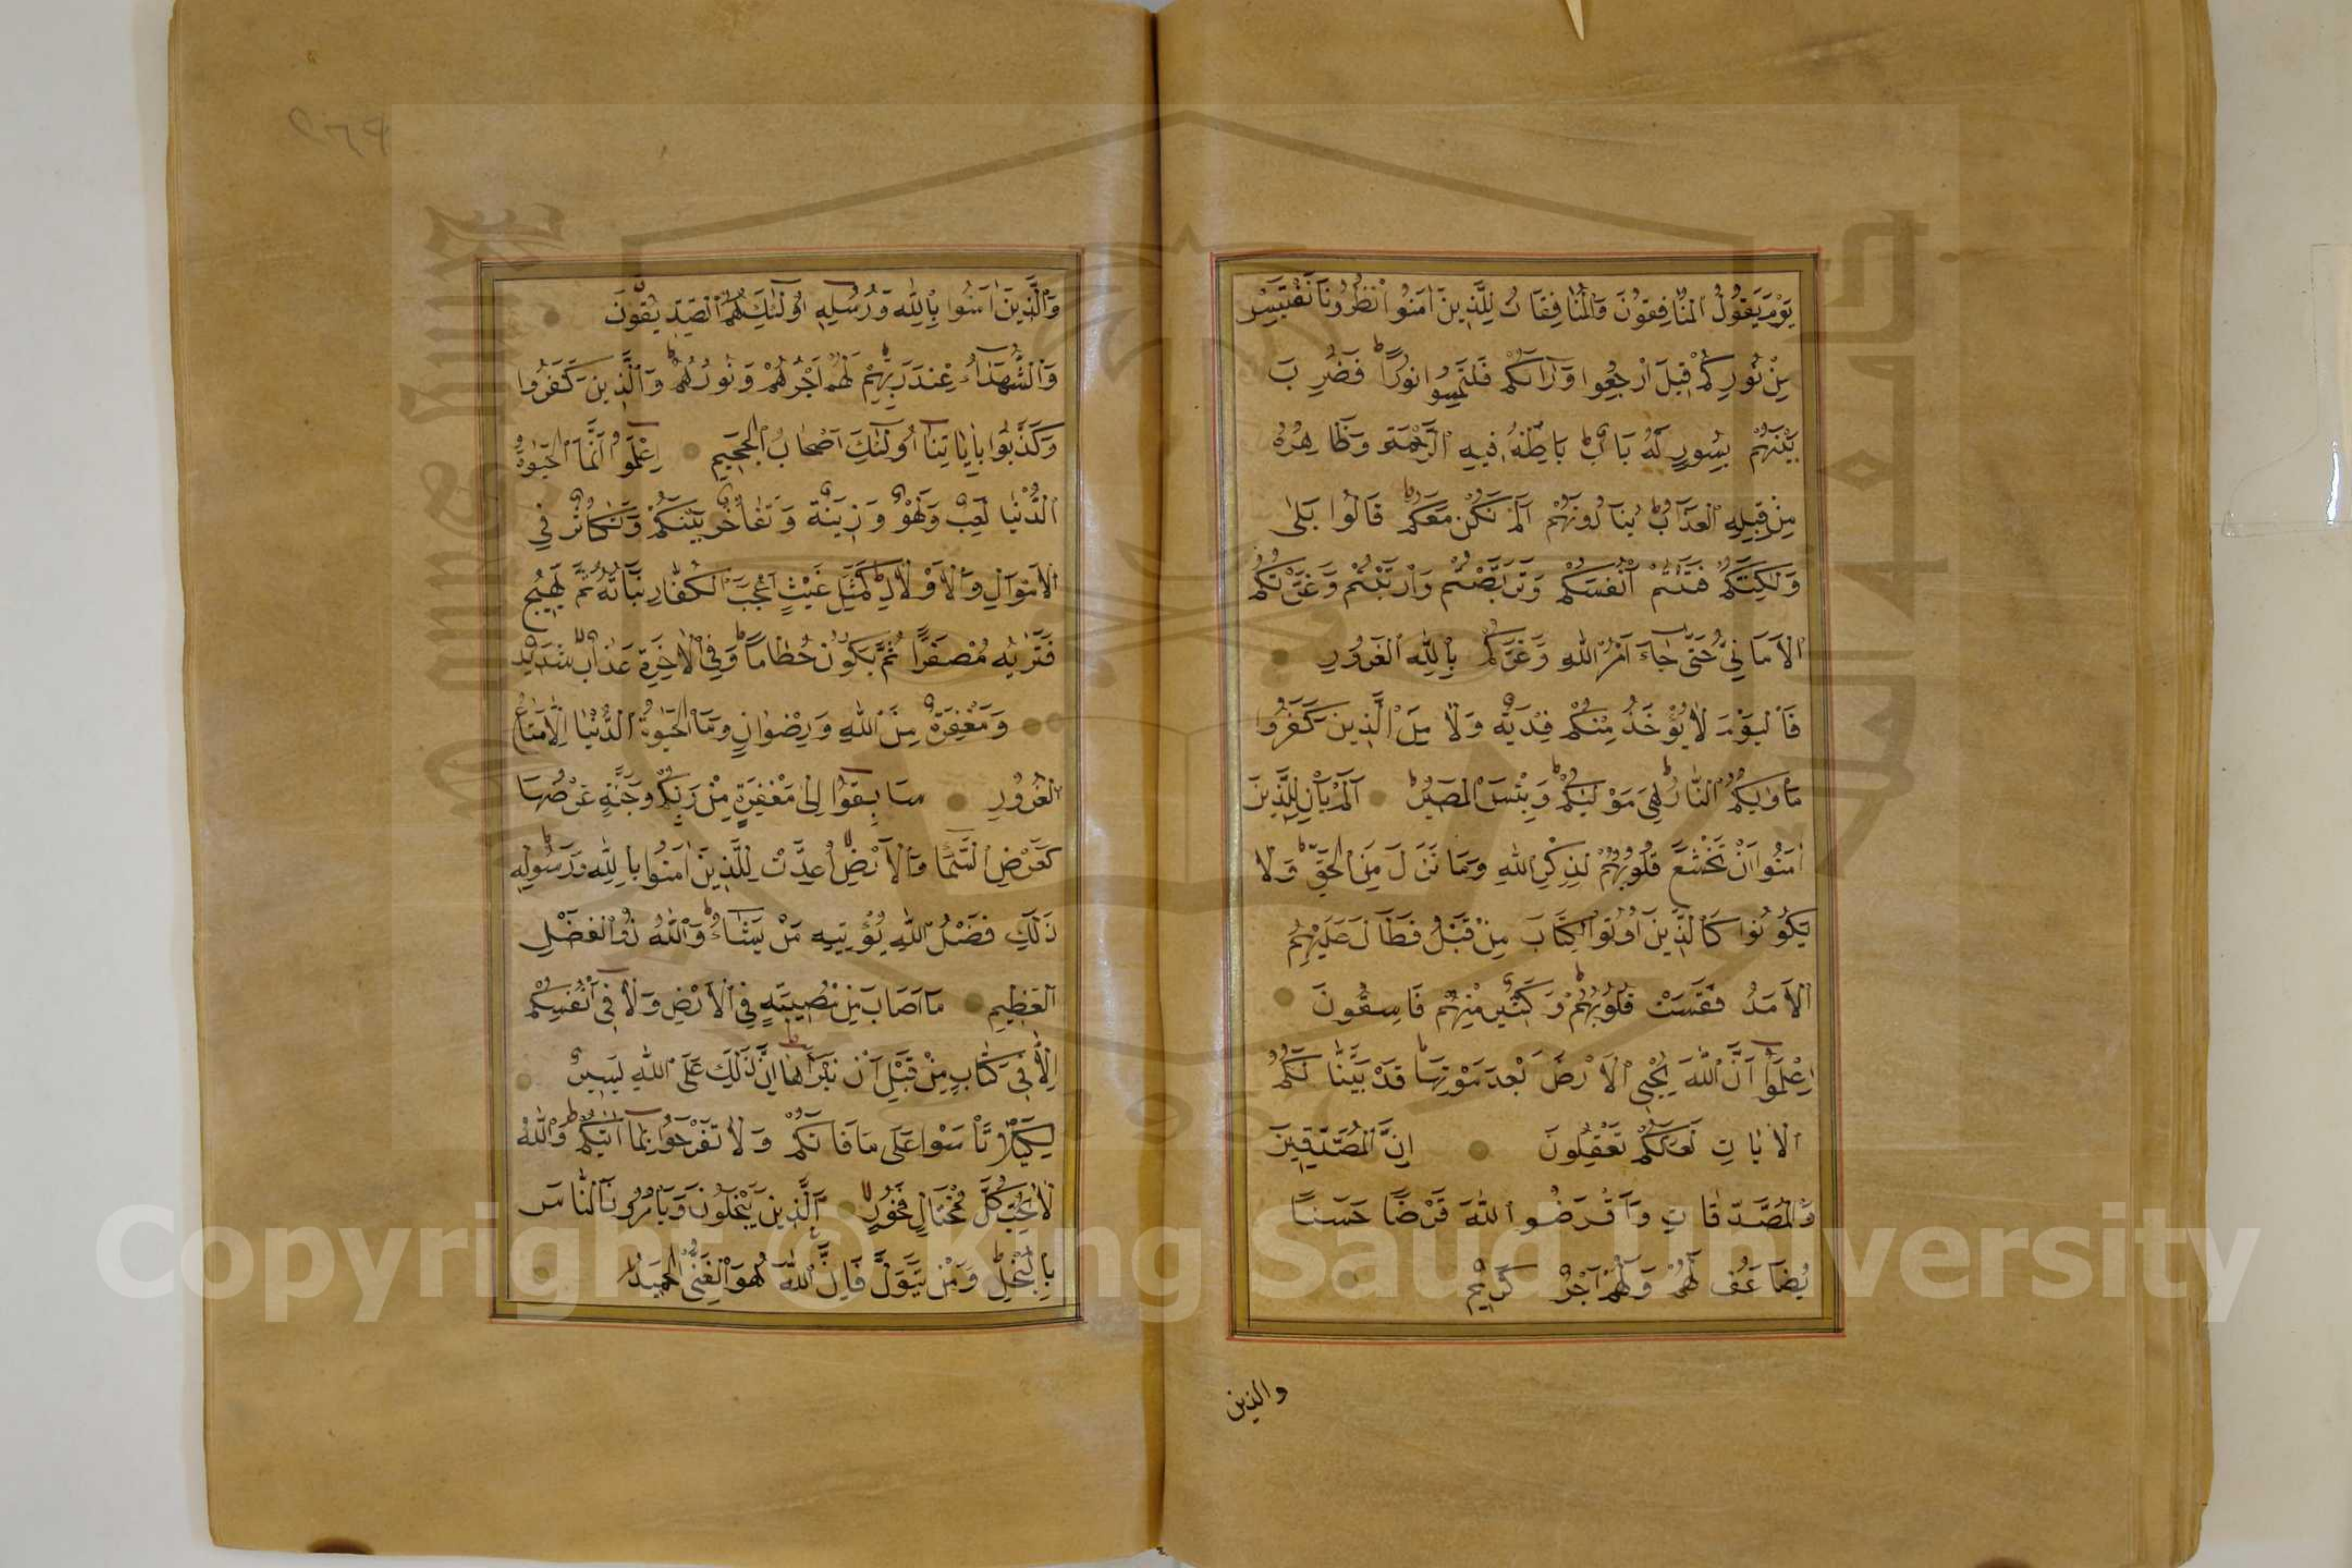 يَوْمَ يَقُولُ الْمُنَافِقُونَ وَالْمُنَافِقَاتُ لِلَّذِينَ اٰمَنُوا انْظُرُونَا نَقْتَبِسْ
مِنْ نُورِكُمْ قِيلَ ارْجِعُوا وَرَآءَكُمْ فَلْتَمِسُوا نُورًا فَضُرِبَ
بَيْنَهُمْ بِسُورٍ لَهُ بَابٌ بَاطِنُهُ فِيهِ الرَّحْمَةُ وَظَاهِرُهُ
مِنْ قِبَلِهِ الْعَذَابُ يُنَادُونَهُمْ اَلَمْ نَكُنْ مَعَكُمْ قَالُوا بَلٰى
وَلٰكِنَّكُمْ فَتَنْتُمْ اَنْفُسَكُمْ وَتَرَبَّصْتُمْ وَارْتَبْتُمْ وَغَرَّتْكُمُ
الْاَمَانِيُّ حَتّٰى جَآءَ اَمْرُ اللّٰهِ وَغَرَّكُمْ بِاللّٰهِ الْغَرُورُ
فَالْيَوْمَ لَا يُؤْخَذُ مِنْكُمْ فِدْيَةٌ وَلَا مِنَ الَّذِينَ كَفَرُوا
مَأْوٰيكُمُ النَّارُ هِيَ مَوْلٰيكُمْ وَبِئْسَ الْمَصِيرُ اَلَمْ يَأْنِ لِلَّذِينَ
اٰمَنُوا اَنْ تَخْشَعَ قُلُوبُهُمْ لِذِكْرِ اللّٰهِ وَمَا نَزَلَ مِنَ الْحَقِّ وَلَا
يَكُونُوا كَالَّذِينَ اُوتُوا الْكِتَابَ مِنْ قَبْلُ فَطَالَ عَلَيْهِمُ
الْاَمَدُ فَقَسَتْ قُلُوبُهُمْ وَكَثِيرٌ مِنْهُمْ فَاسِقُونَ
اِعْلَمُوا اَنَّ اللّٰهَ يُحْيِي الْاَرْضَ بَعْدَ مَوْتِهَا قَدْ بَيَّنَّا لَكُمُ
الْاٰيَاتِ لَعَلَّكُمْ تَعْقِلُونَ اِنَّ الْمُصَّدِّقِينَ
وَالْمُصَّدِّقَاتِ وَاَقْرَضُوا اللّٰهَ قَرْضًا حَسَنًا
يُضَاعَفُ لَهُمْ وَلَهُمْ اَجْرٌ كَرِيمٌ
والذين
وَالَّذِينَ اٰمَنُوا بِاللّٰهِ وَرُسُلِهِ اُولٰٓئِكَ هُمُ الصِّدِّيقُونَ
وَالشُّهَدَآءُ عِنْدَ رَبِّهِمْ لَهُمْ اَجْرُهُمْ وَنُورُهُمْ وَالَّذِينَ كَفَرُوا
وَكَذَّبُوا بِاٰيَاتِنَا اُولٰٓئِكَ اَصْحَابُ الْجَحِيمِ اِعْلَمُوا اَنَّمَا الْحَيٰوةُ
الدُّنْيَا لَعِبٌ وَلَهْوٌ وَزِينَةٌ وَتَفَاخُرٌ بَيْنَكُمْ وَتَكَاثُرٌ فِي
الْاَمْوَالِ وَالْاَوْلَادِ كَمَثَلِ غَيْثٍ اَعْجَبَ الْكُفَّارَ نَبَاتُهُ ثُمَّ يَهِيجُ
فَتَرٰيهُ مُصْفَرًّا ثُمَّ يَكُونُ حُطَامًا وَفِي الْاٰخِرَةِ عَذَابٌ شَدِيدٌ
وَمَغْفِرَةٌ مِنَ اللّٰهِ وَرِضْوَانٌ وَمَا الْحَيٰوةُ الدُّنْيَا اِلَّا مَتَاعُ
الْغُرُورِ سَابِقُوا اِلٰى مَغْفِرَةٍ مِنْ رَبِّكُمْ وَجَنَّةٍ عَرْضُهَا
كَعَرْضِ السَّمَآءِ وَالْاَرْضِ اُعِدَّتْ لِلَّذِينَ اٰمَنُوا بِاللّٰهِ وَرَسُولِهِ
ذٰلِكَ فَضْلُ اللّٰهِ يُؤْتِيهِ مَنْ يَشَآءُ وَاللّٰهُ ذُو الْفَضْلِ
الْعَظِيمِ مَآ اَصَابَ مِنْ مُصِيبَةٍ فِي الْاَرْضِ وَلَا فِي اَنْفُسِكُمْ
اِلَّا فِي كِتَابٍ مِنْ قَبْلِ اَنْ نَبْرَاَهَا اِنَّ ذٰلِكَ عَلَى اللّٰهِ يَسِيرٌ
لِكَيْلَا تَأْسَوْا عَلٰى مَا فَاتَكُمْ وَلَا تَفْرَحُوا بِمَآ اٰتٰيكُمْ وَاللّٰهُ
لَا يُحِبُّ كُلَّ مُخْتَالٍ فَخُورٍ اَلَّذِينَ يَبْخَلُونَ وَيَأْمُرُونَ النَّاسَ
بِالْبُخْلِ وَمَنْ يَتَوَلَّ فَاِنَّ اللّٰهَ هُوَ الْغَنِيُّ الْحَمِيدُ
Copyright © King Saud University